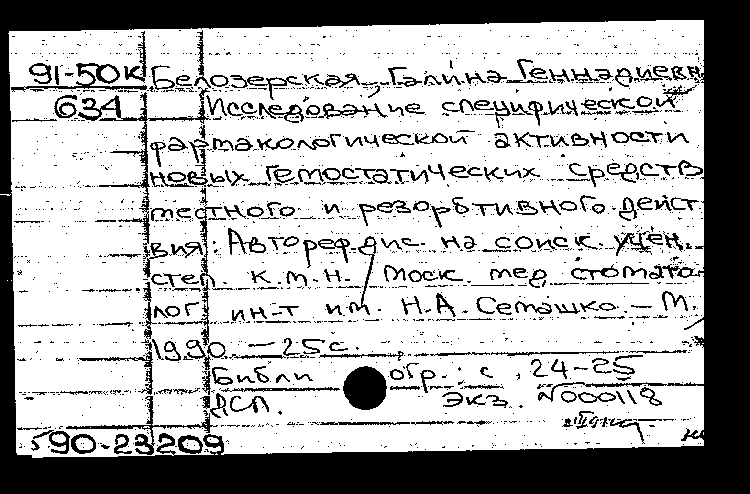 91-50к Белозерская, Галина Геннадиевн
634 Исследование специфической
фармакологической активности
новых гемостатических средств
местного и резорбтивного дейст
вия: Автореф. дис. на соиск. учен.
степ. к.м.н. / Моск. мед. стомато-
лог. ин-т им. Н.А. Семашко. – М.
1990. – 25 с.
Библиогр.: с. 24-25
ДСП. Экз. N000118
90-23209